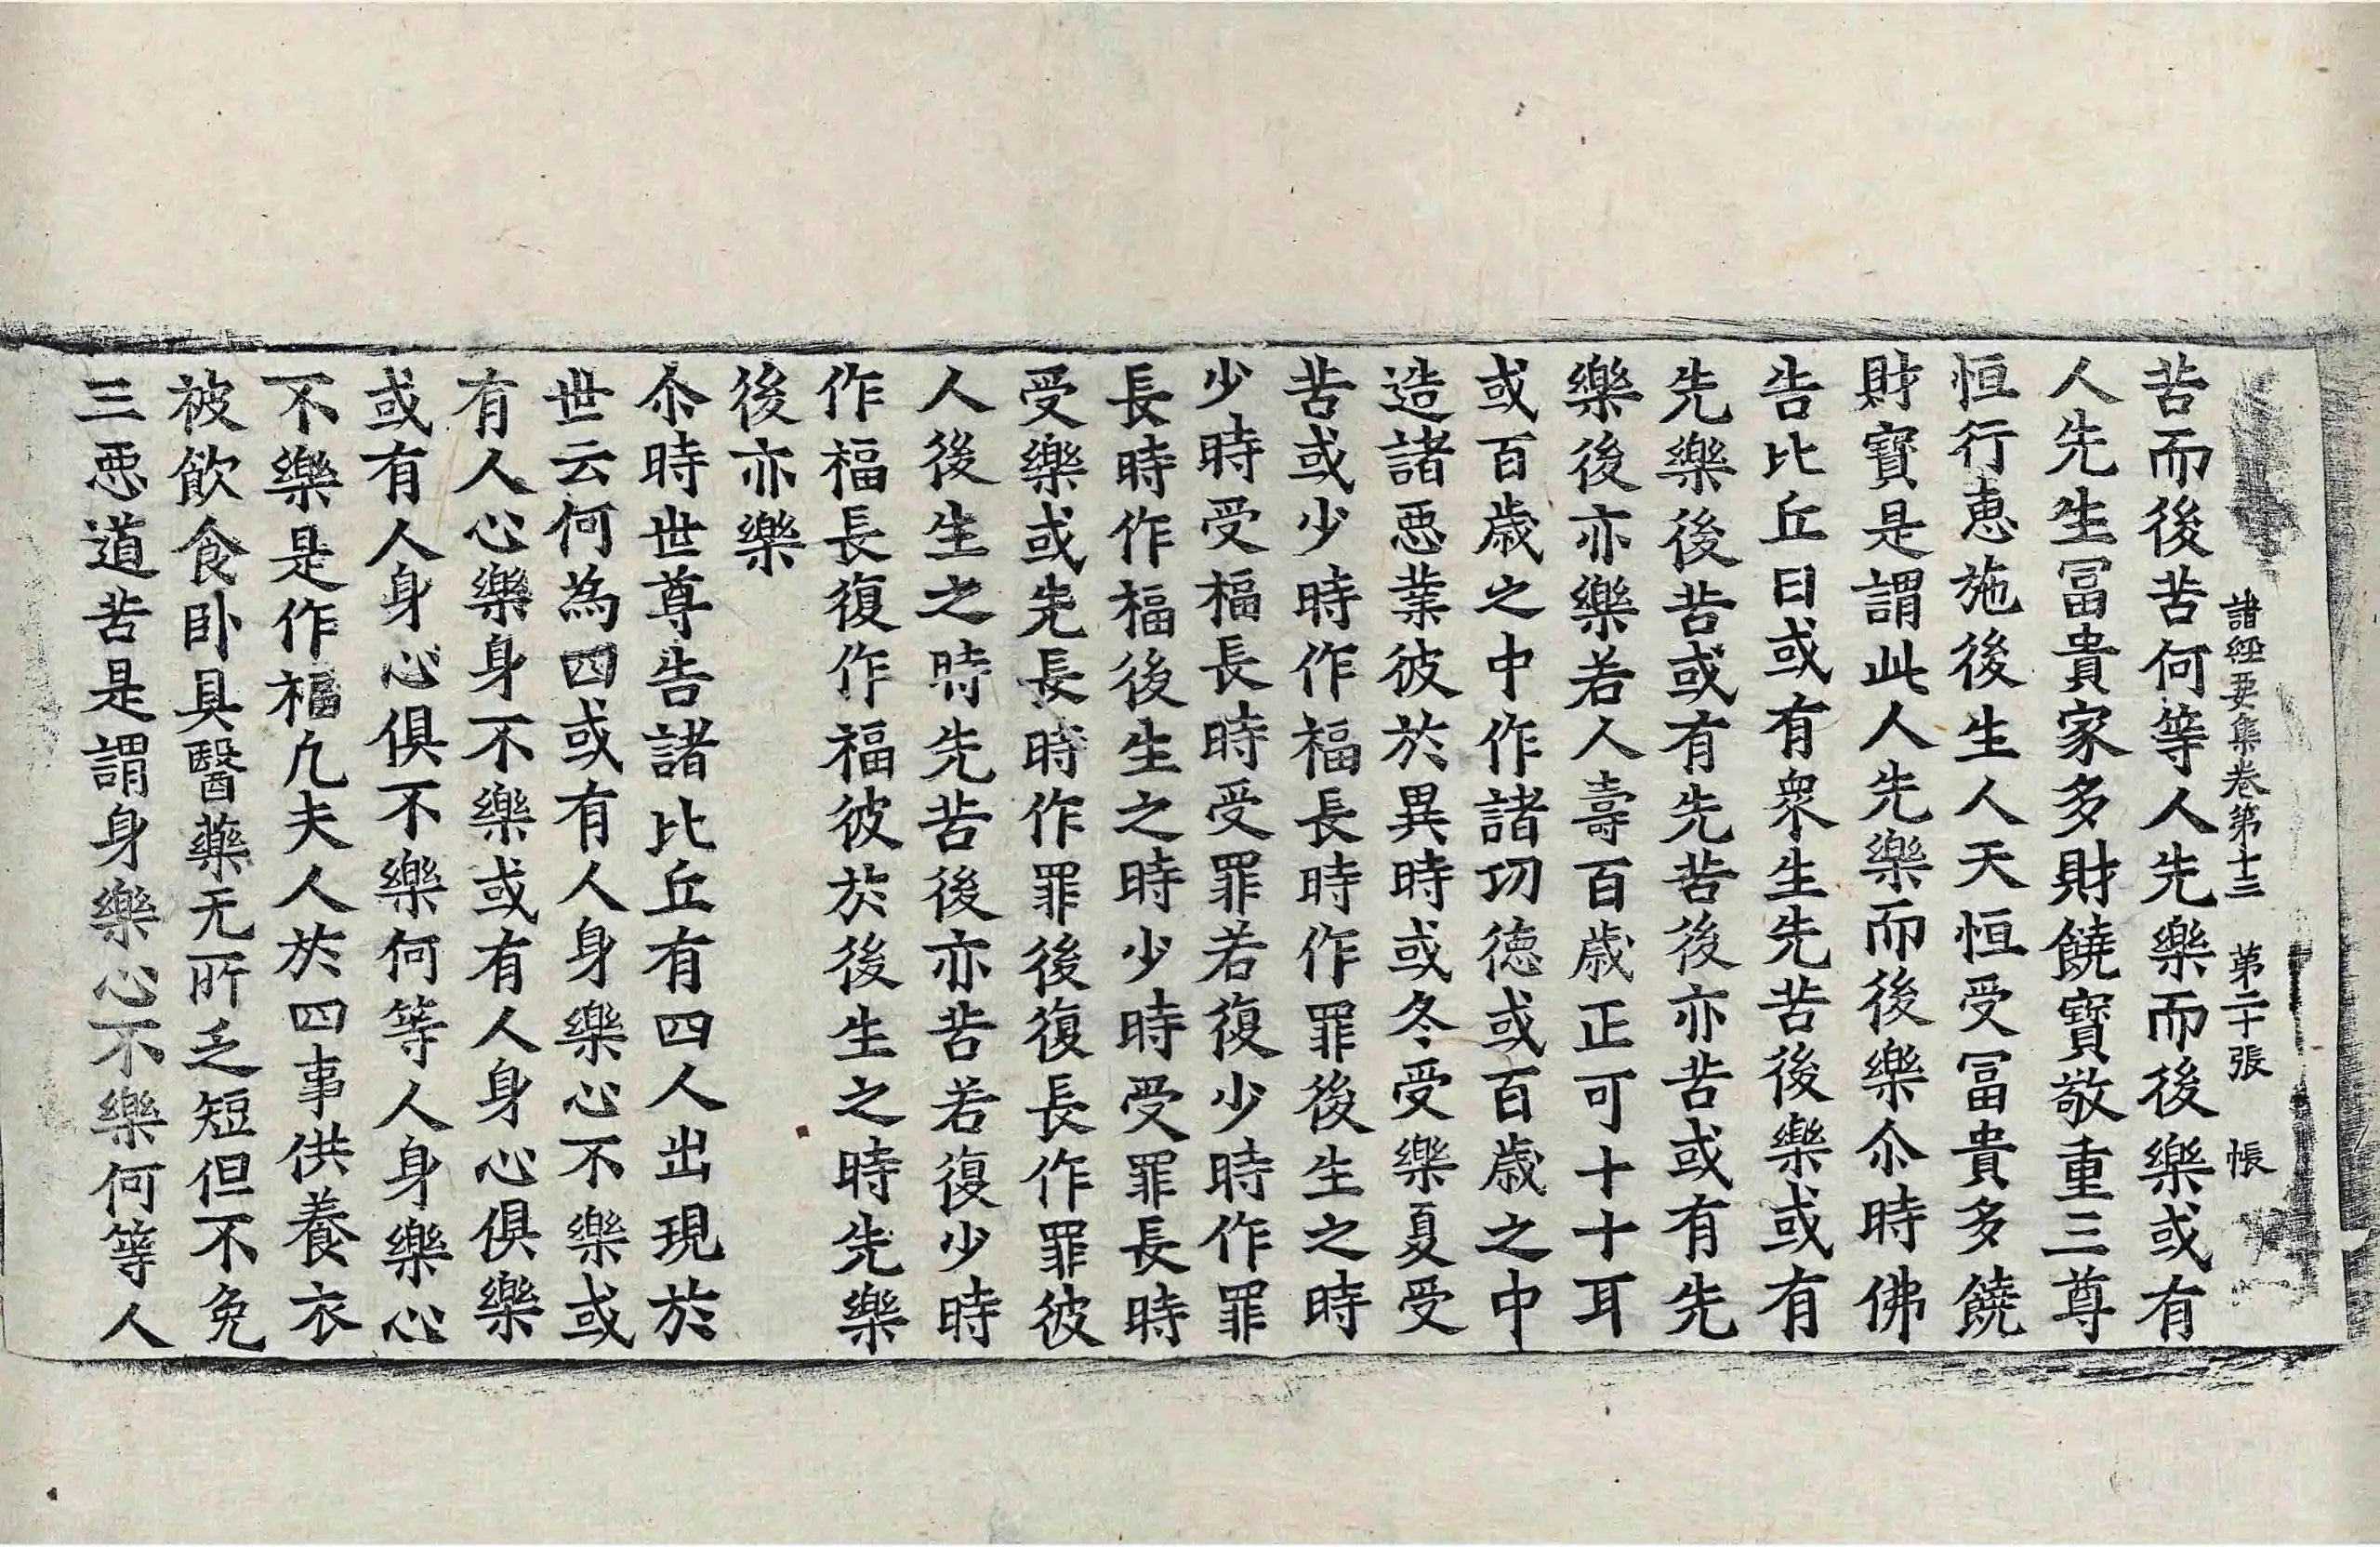 諸經要集卷第十三　第二十張　帳
苦而後苦何等人先樂而後樂或有
人先生冨貴家多財饒寶敬重三尊
恒行恵施後生人天恒受冨貴多饒
財寶是謂此人先樂而後樂尒時佛
告比丘曰或有衆生先苦後樂或有
先樂後苦或有先苦後亦苦或有先
樂後亦樂若人壽百歲正可十十耳
或百歲之中作諸功德或百歲之中
造諸惡業彼於異時或冬受樂夏受
苦或少時作福長時作罪後生之時
少時受福長時受罪若復少時作罪
長時作福後生之時少時受罪長時
受樂或先長時作罪後復長作罪彼
人後生之時先苦後亦苦若復少時
作福長復作福彼於後生之時先樂
後亦樂
尒時世尊告諸比丘有四人出現於
世云何為四或有人身樂心不樂或
有人心樂身不樂或有人身心俱樂
或有人身心俱不樂何等人身樂心
不樂是作福凢夫人於四事供養衣
被飲食卧具醫藥无所乏短但不免
三惡道苦是謂身樂心不樂何等人